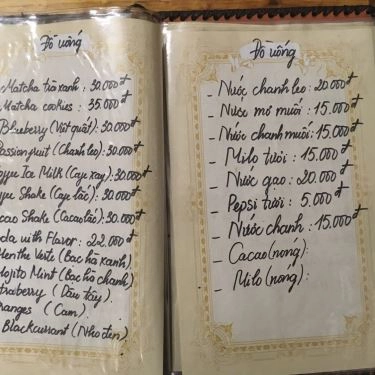 Đồ uống
Matcha trà xanh: 30.000đ
Matcha cookies: 35.000đ
Blueberry (Việt quất): 30.000đ
Passionfruit (Chanh leo): 30.000đ
Ice Milk (Cafe xay): 30.000đ
Shake (Cafe lắc): 30.000đ
Shake (Cacao lắc): 30.000đ
with Flavor: 22.000đ
Menthe Verte (Bạc hà xanh)
Mojito Mint (Bạc hà chanh)
(Dâu tây)
(Cam)
Blackcurrant (Nho đen)
Đồ uống
- Nước chanh leo: 20.000đ
- Nước mơ muối: 15.000đ
- Nước chanh muối: 15.000đ
- Milo tươi: 15.000đ
- Nước gạo: 20.000đ
- Pepsi tươi: 5.000đ
- Nước chanh: 15.000đ
- Cacao (nóng):
- Milo (nóng):